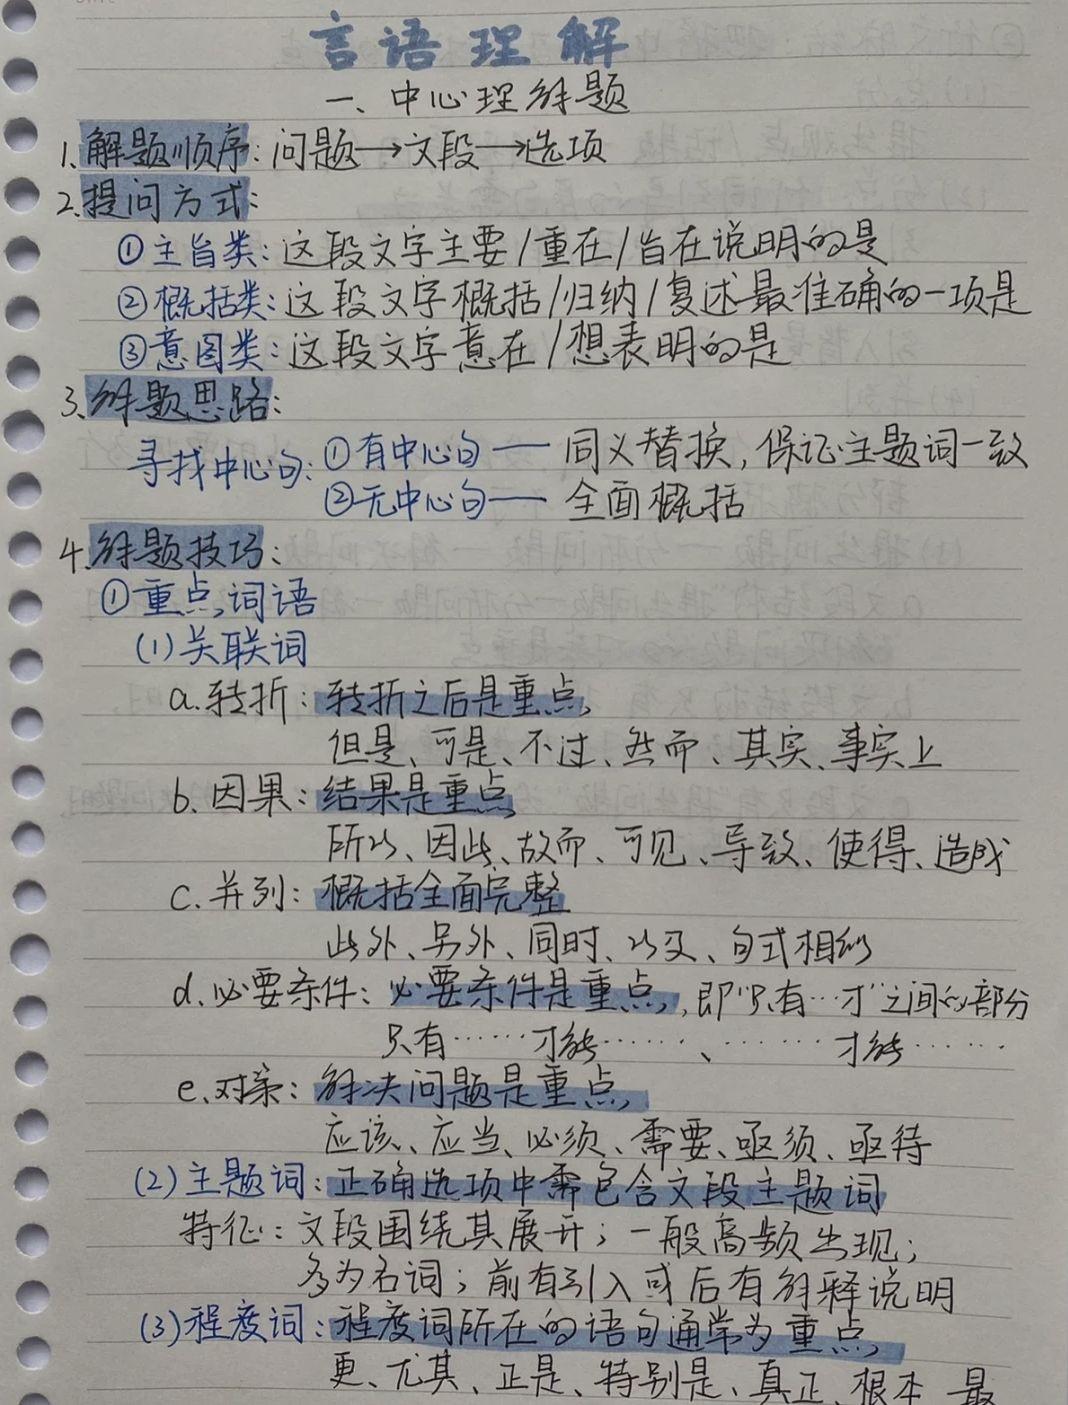 言语理解
一、中心理解题
1.解题顺序:问题→文段→选项
2.提问方式:
①主旨类:这段文字主要/重在/旨在说明的是
②概括类:这段文字概括/归纳/复述最准确的一项是
③意图类:这段文字意在/想表明的是
3.解题思路:
寻找中心句:①有中心句——同义替换,保证主题词一致
②无中心句——全面概括
4.解题技巧:
①重点词语
(1)关联词
a.转折:转折之后是重点,
但是、可是、不过、然而、其实、事实上
b.因果:结果是重点
所以、因此、故而、可见、导致、使得、造成
c.并列:概括全面完整
此外、另外、同时、以及、句式相似
d.必要条件:必要条件是重点,即"只有…才"之间的部分
只有……才能……、……才能……
e.对策:解决问题是重点,
应该、应当、必须、需要、亟须、亟待
(2)主题词:正确选项中需包含文段主题词
特征:文段围绕其展开;一般高频出现;
多为名词;前有引入或后有解释说明
(3)程度词:程度词所在的语句通常为重点,
更、尤其、正是、特别是、真正、根本、最